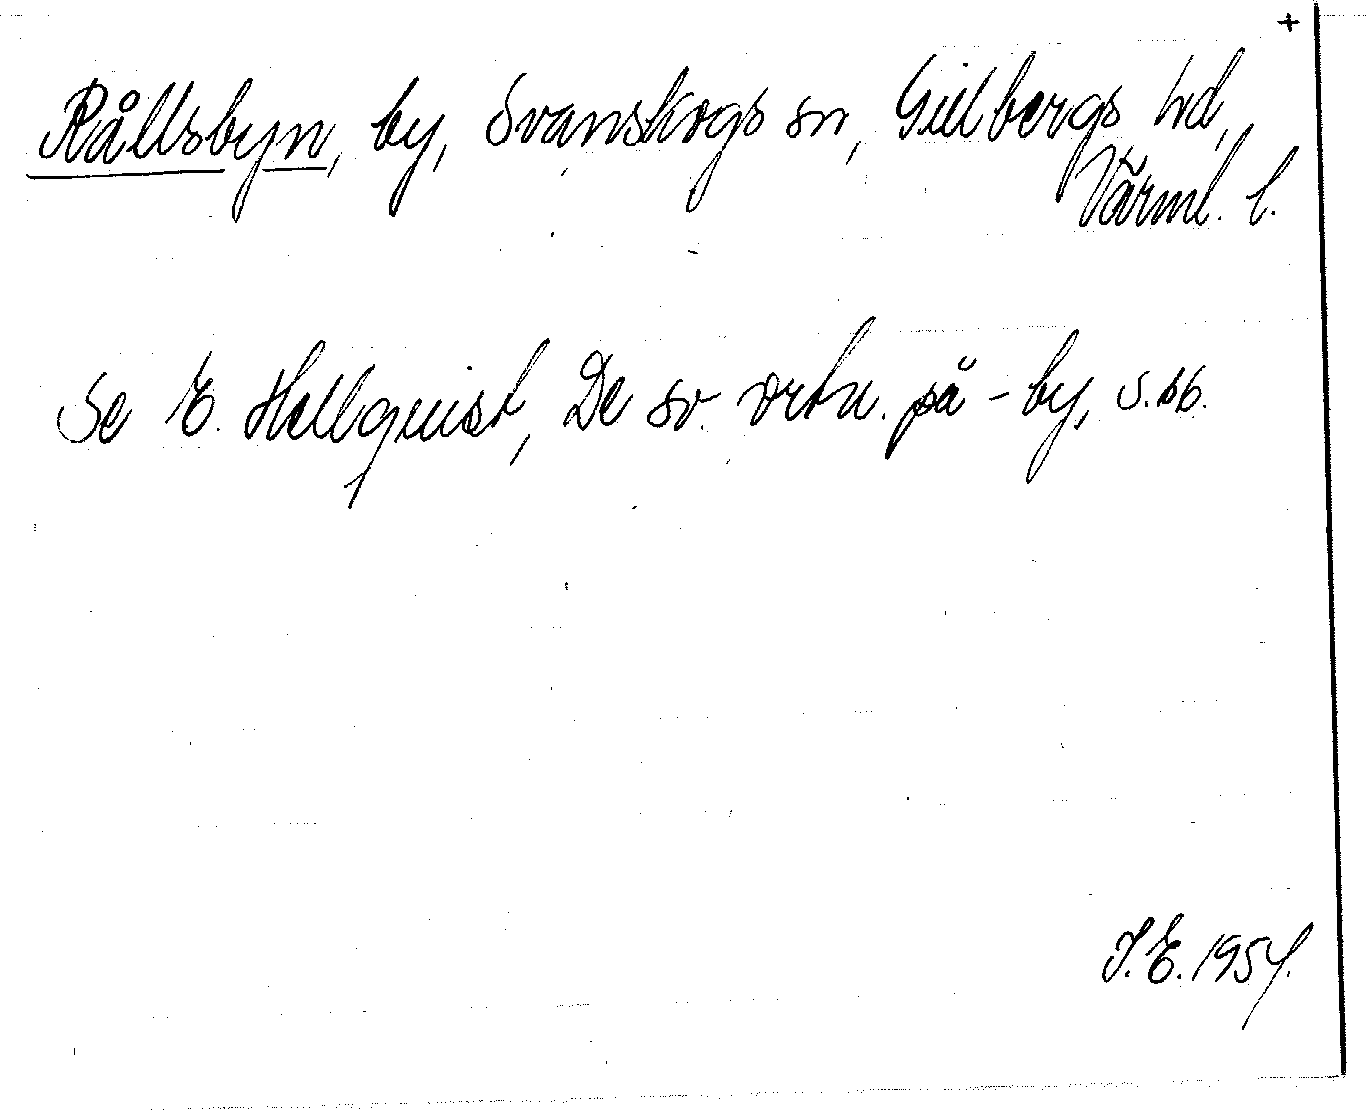 +
Rållsbyn, by, Svanskogs sn, Gillbergs hd,
Värml. l.
Se E. Hellquist, De sv. ortn. på -by, s. 66.
I.E. 1954.